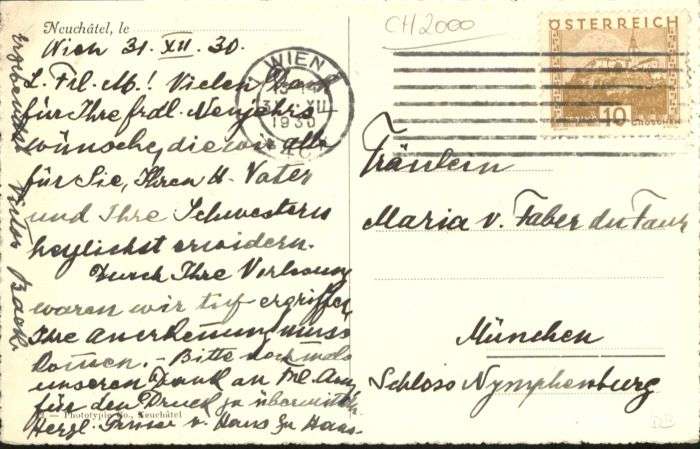 Neuchâtel, le
Wien 31. XII. 30.
L. Frl. M.! Vielen Dank
für Ihre frdl. Neujahrs
wünsche, die wir alle
für Sie, Ihren H. Vater
und Ihre Schwestern
herzlichst erwidern.
Durch Ihre
waren wir tief ergriffen
Ihre Anerkennung muss
kommen. - Bitte nochmals
unseren Dank an Frl. Amy
für den Druck zu übermitteln.
Herzl. Grüsse v. Haus zu Haus.
Ergebenster Bach
Phototypie Co., Neuchâtel
CH 2000
WIEN
31. XII
1930
ÖSTERREICH
10 GROSCHEN
Fräulein
Maria v. Faber du Faur
München
Schloss Nymphenburg